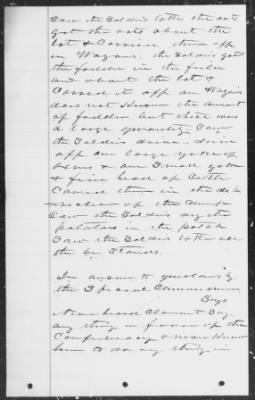 Saw the Soldiers take the oats
got the oats about the
lot & carried them off
in Wagons. the Soldiers got
the fodder in the field
and about the lot &
carried it off in Wagons
does not know the amount
of fodder but there was
a large quantity Saw
the Soldiers drive
off one large yoke of
and one small yoke
& five head of Cattle
carried them in the di-
rection of the camp
Saw the Soldiers dig the
potatoes in the patch
Saw the Soldiers take all
the bee Stands.
In answer to questions by
the Special Commissioner
Says
Never heard Claimant Say
any thing in favor of the
Confederacy & never knew
him to do any thing in